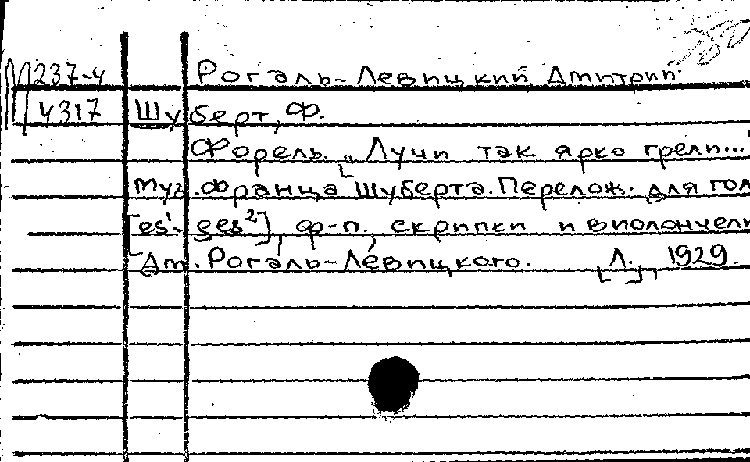 П 237-4 Рогаль-Левицкий, Дмитрий.
4317 Шуберт, Ф.
Форель. „Лучи так ярко грели...
Муз. Франца Шуберта. Перелож. для гол
[es¹-ges²], ф-п., скрипки и виолончели
Дм. Рогаль-Левицкого. [Л.], 1929.